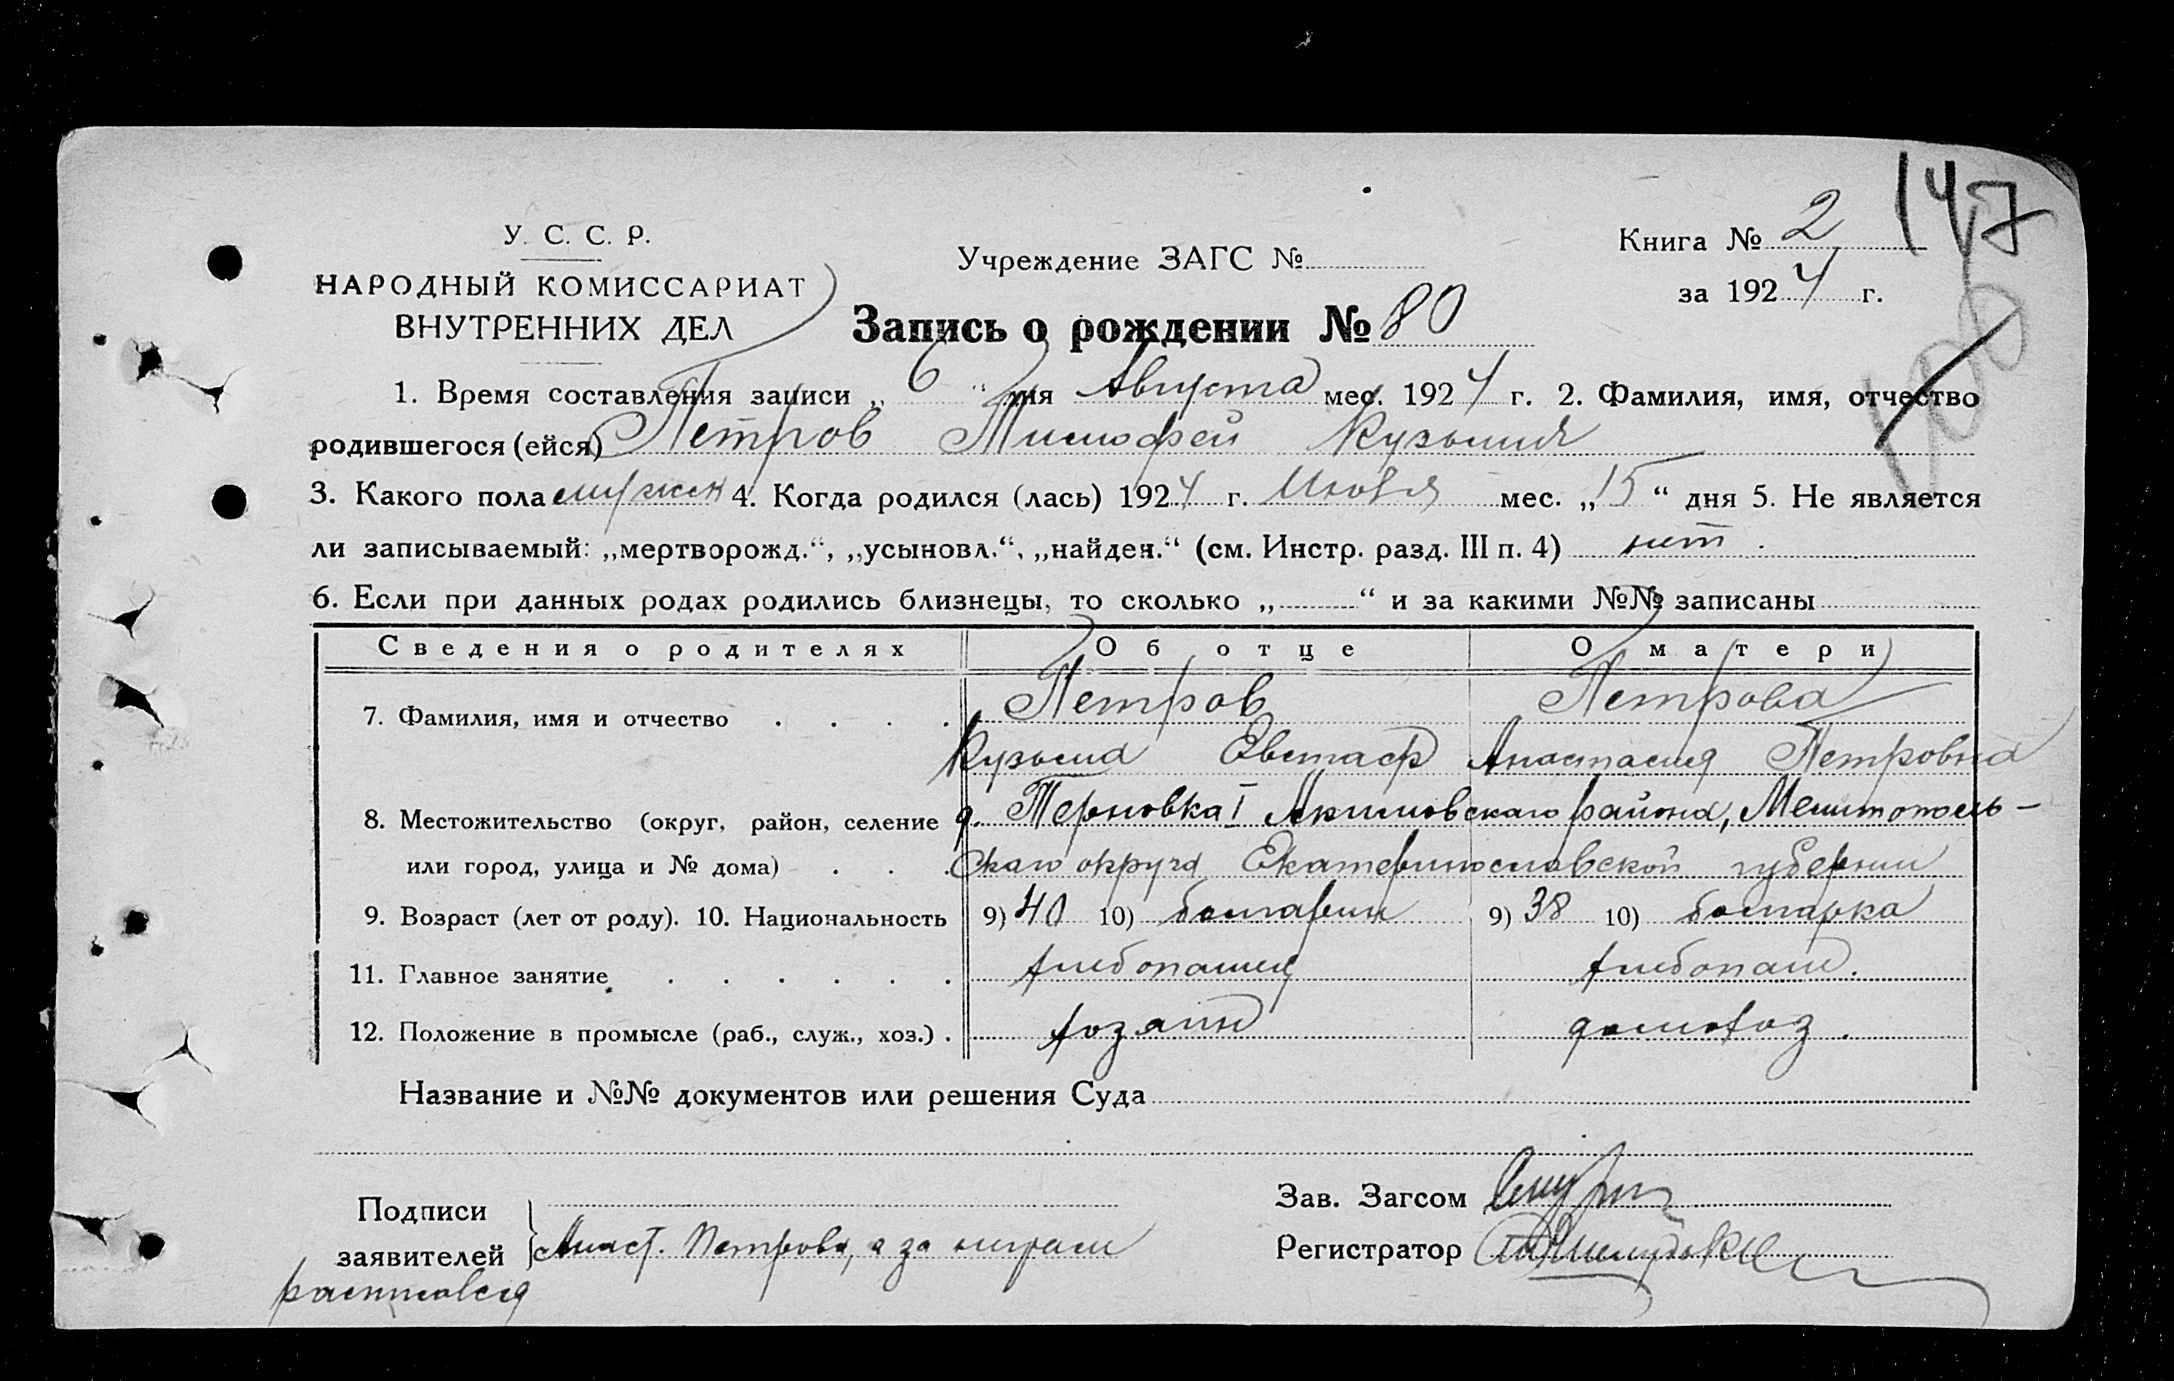 147
У. С. С. Р.
НАРОДНЫЙ КОМИССАРИАТ
ВНУТРЕННИХ ДЕЛ
Учреждение ЗАГС №
Книга № 2
за 1924 г.
Запись о рождении № 80
1. Время составления записи „ 6 “ дня Августа мес. 1924 г. 2. Фамилия, имя, отчество
родившегося (ейся) Петров Тимофей Кузьмич
3. Какого пола мужск 4. Когда родился (лась) 1924 г. Июля мес. „15“ дня 5. Не является
ли записываемый: „мертворожд.“, „усыновл.“, „найден.“ (см. Инстр. разд. III п. 4) нет.
6. Если при данных родах родились близнецы, то сколько „ “ и за какими №№ записаны
Сведения о родителях Об отце О матери
7. Фамилия, имя и отчество Петров Петрова
Кузьма Евстаф Анастасия Петровна
8. Местожительство (округ, район, селение д. Терновка I Акимовскаго района, Мелитополь-
или город, улица и № дома) скаго округа Екатеринославской губернии
9. Возраст (лет от роду). 10. Национальность 9) 40 10) болгарин 9) 38 10) болгарка
11. Главное занятие хлебопашец хлебопаш.
12. Положение в промысле (раб., служ., хоз.) хозяин домохоз.
Название и №№ документов или решения Суда
Подписи
заявителей Анаст. Петрова, а за неграм
расписався
Зав. Загсом
Регистратор